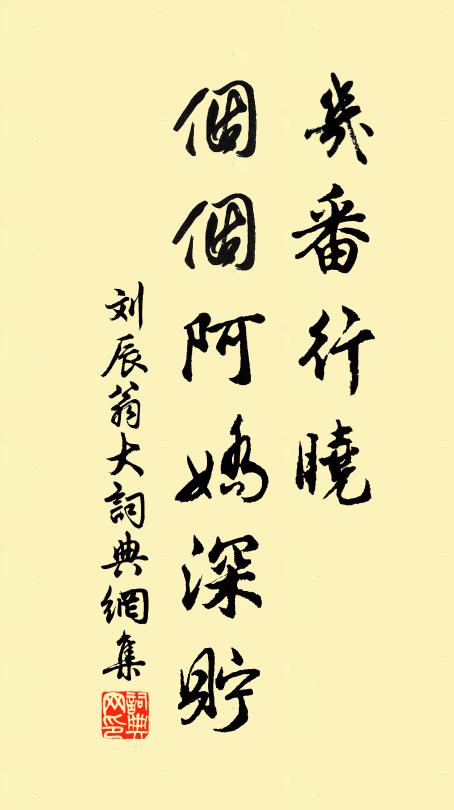 幾番行曉
個個阿嬌深貯
刘辰翁大詞典網集
詞典
网印